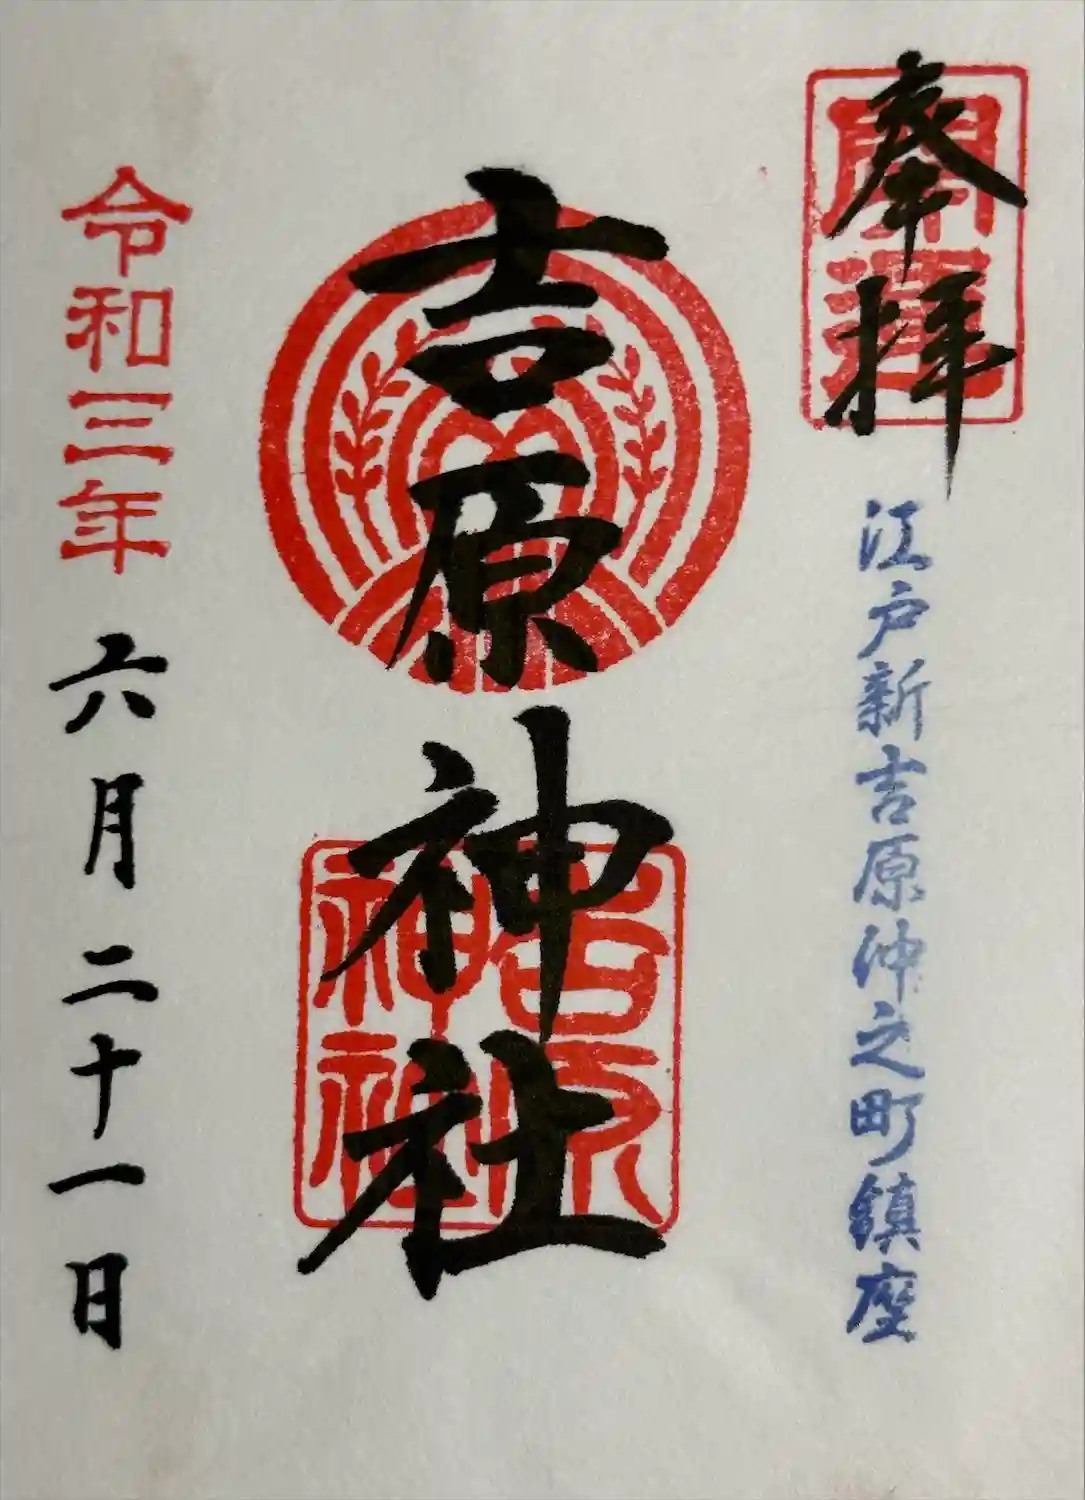 奉拝
開運
江戸新吉原仲之町鎮座
吉原神社
吉原
神社
令和三年
六月二十一日